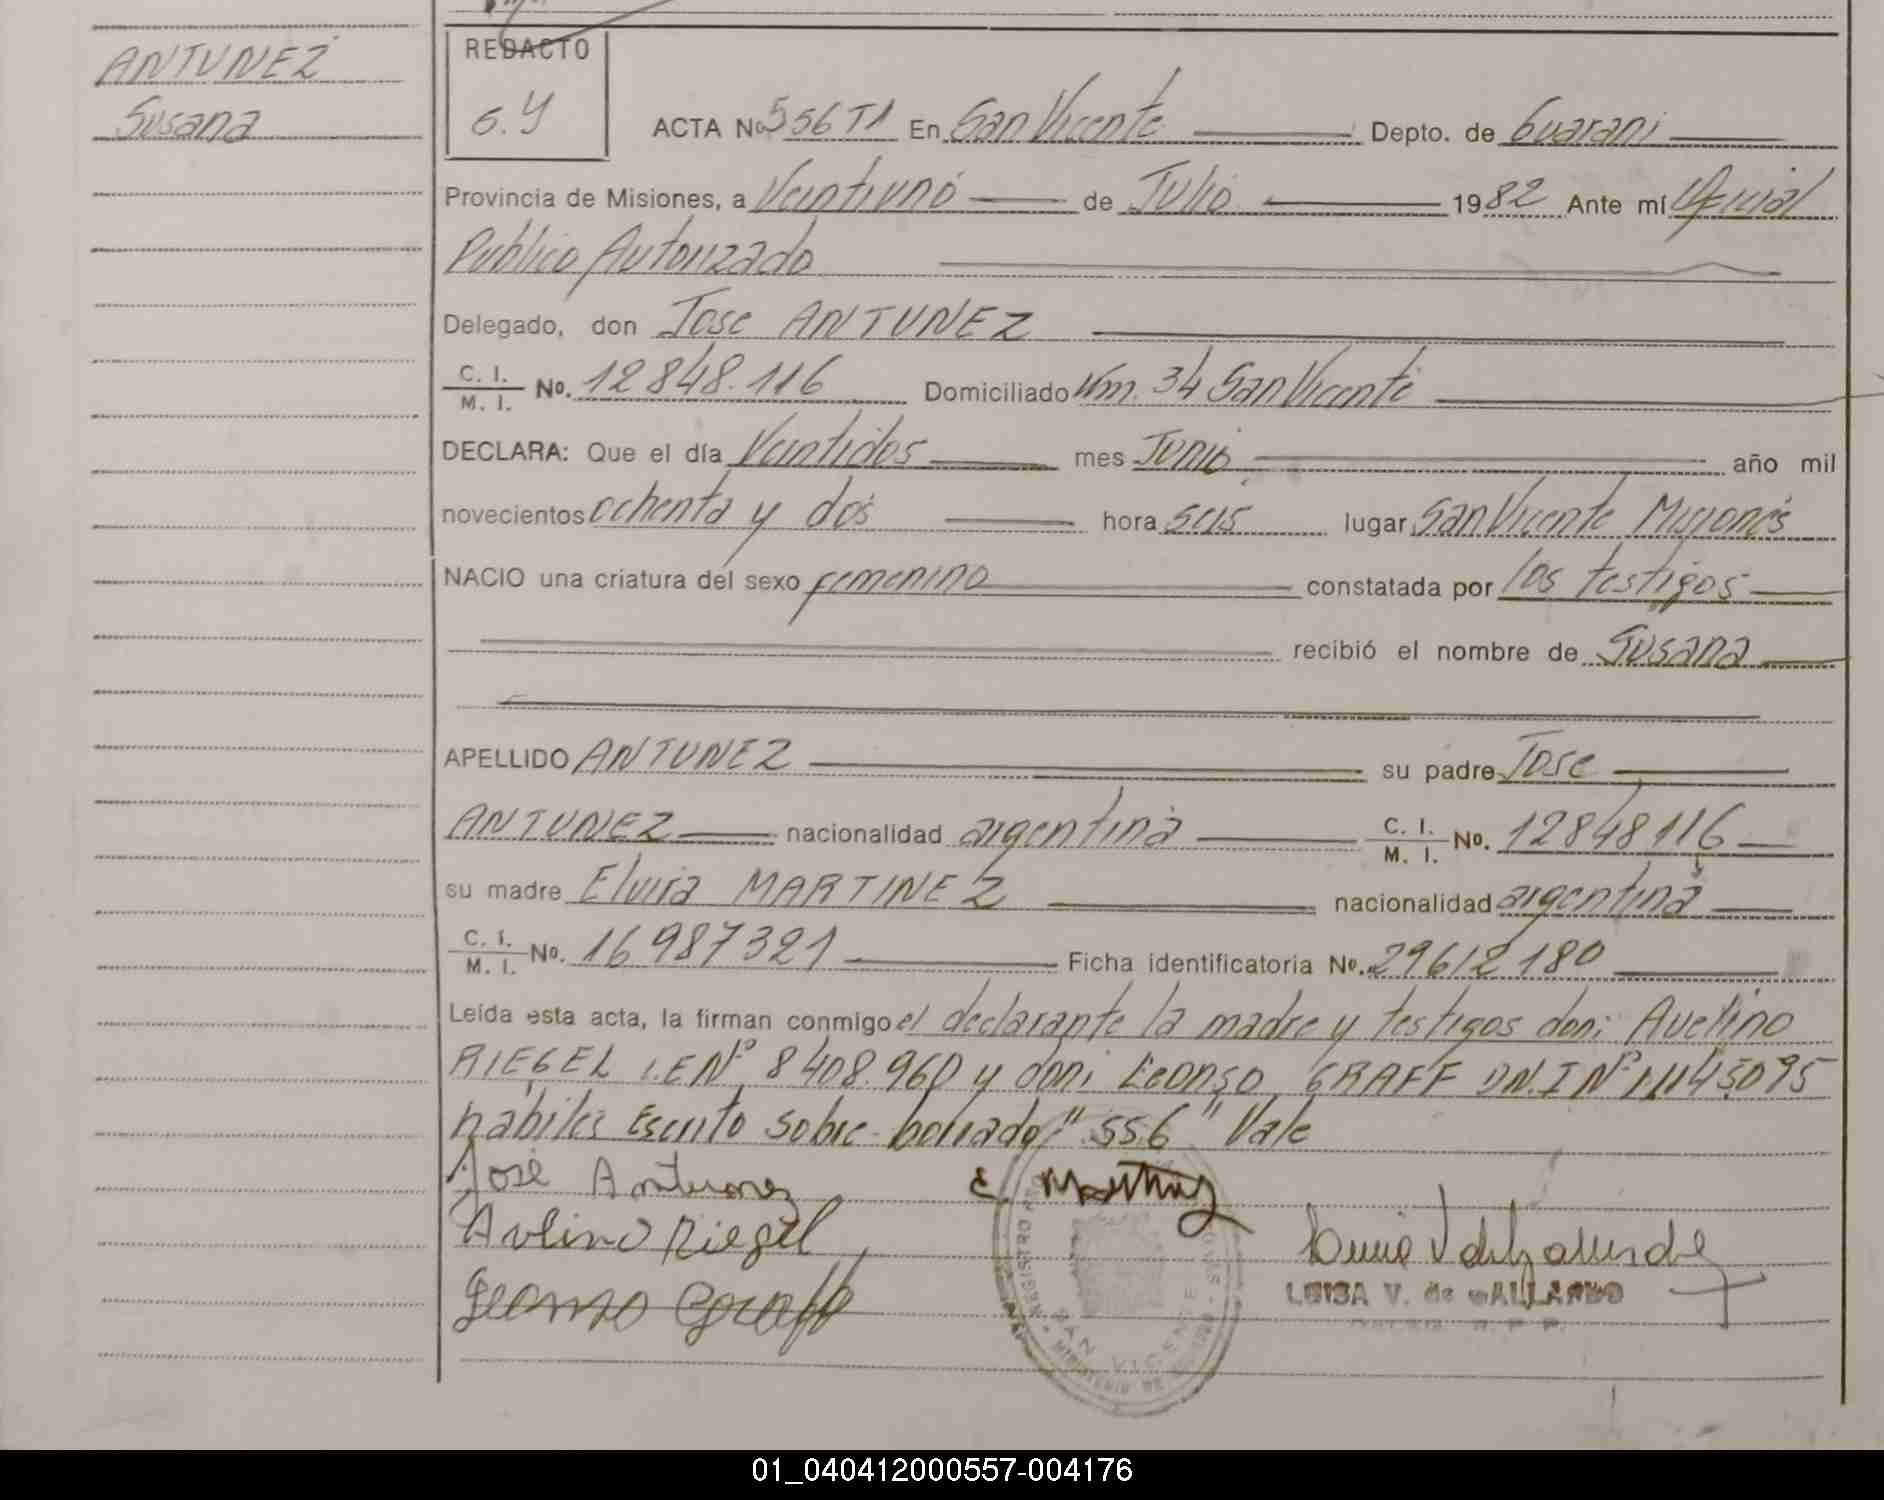 ANTUNEZ
Susana
REDACTO
G.Y
ACTA No 556 T1 En San Vicente Depto. de Guarani
Provincia de Misiones, a Veintiuno de Julio 1982 Ante mí Oficial
Publico Autorizado
Delegado, don Jose ANTUNEZ
C. I. M. I. No. 12848.116 Domiciliado Km. 34 San Vicente
DECLARA: Que el día Veintidos mes Junio año mil
novecientos ochenta y dos hora seis lugar San Vicente Misiones
NACIO una criatura del sexo femenino constatada por los testigos
recibió el nombre de Susana
APELLIDO ANTUNEZ su padre Jose
ANTUNEZ nacionalidad argentina C. I. M. I. No. 12848116
su madre Elvira MARTINEZ nacionalidad argentina
C. I. M. I. No. 16987321 Ficha identificatoria No. 29612180
Leída esta acta, la firman conmigo el declarante la madre y testigos don: Avelino
RIEGEL L.E Nº 8408.960 y don: Leonso GRAFF D.N.I Nº 11145095
habiles Escrito sobre borrado: "556" Vale
José Antunez
E. Martinez
Avlino Riegel
Leonso Graff
LUISA V. de GALLARDO
SAN VICENTE
01_040412000557-004176